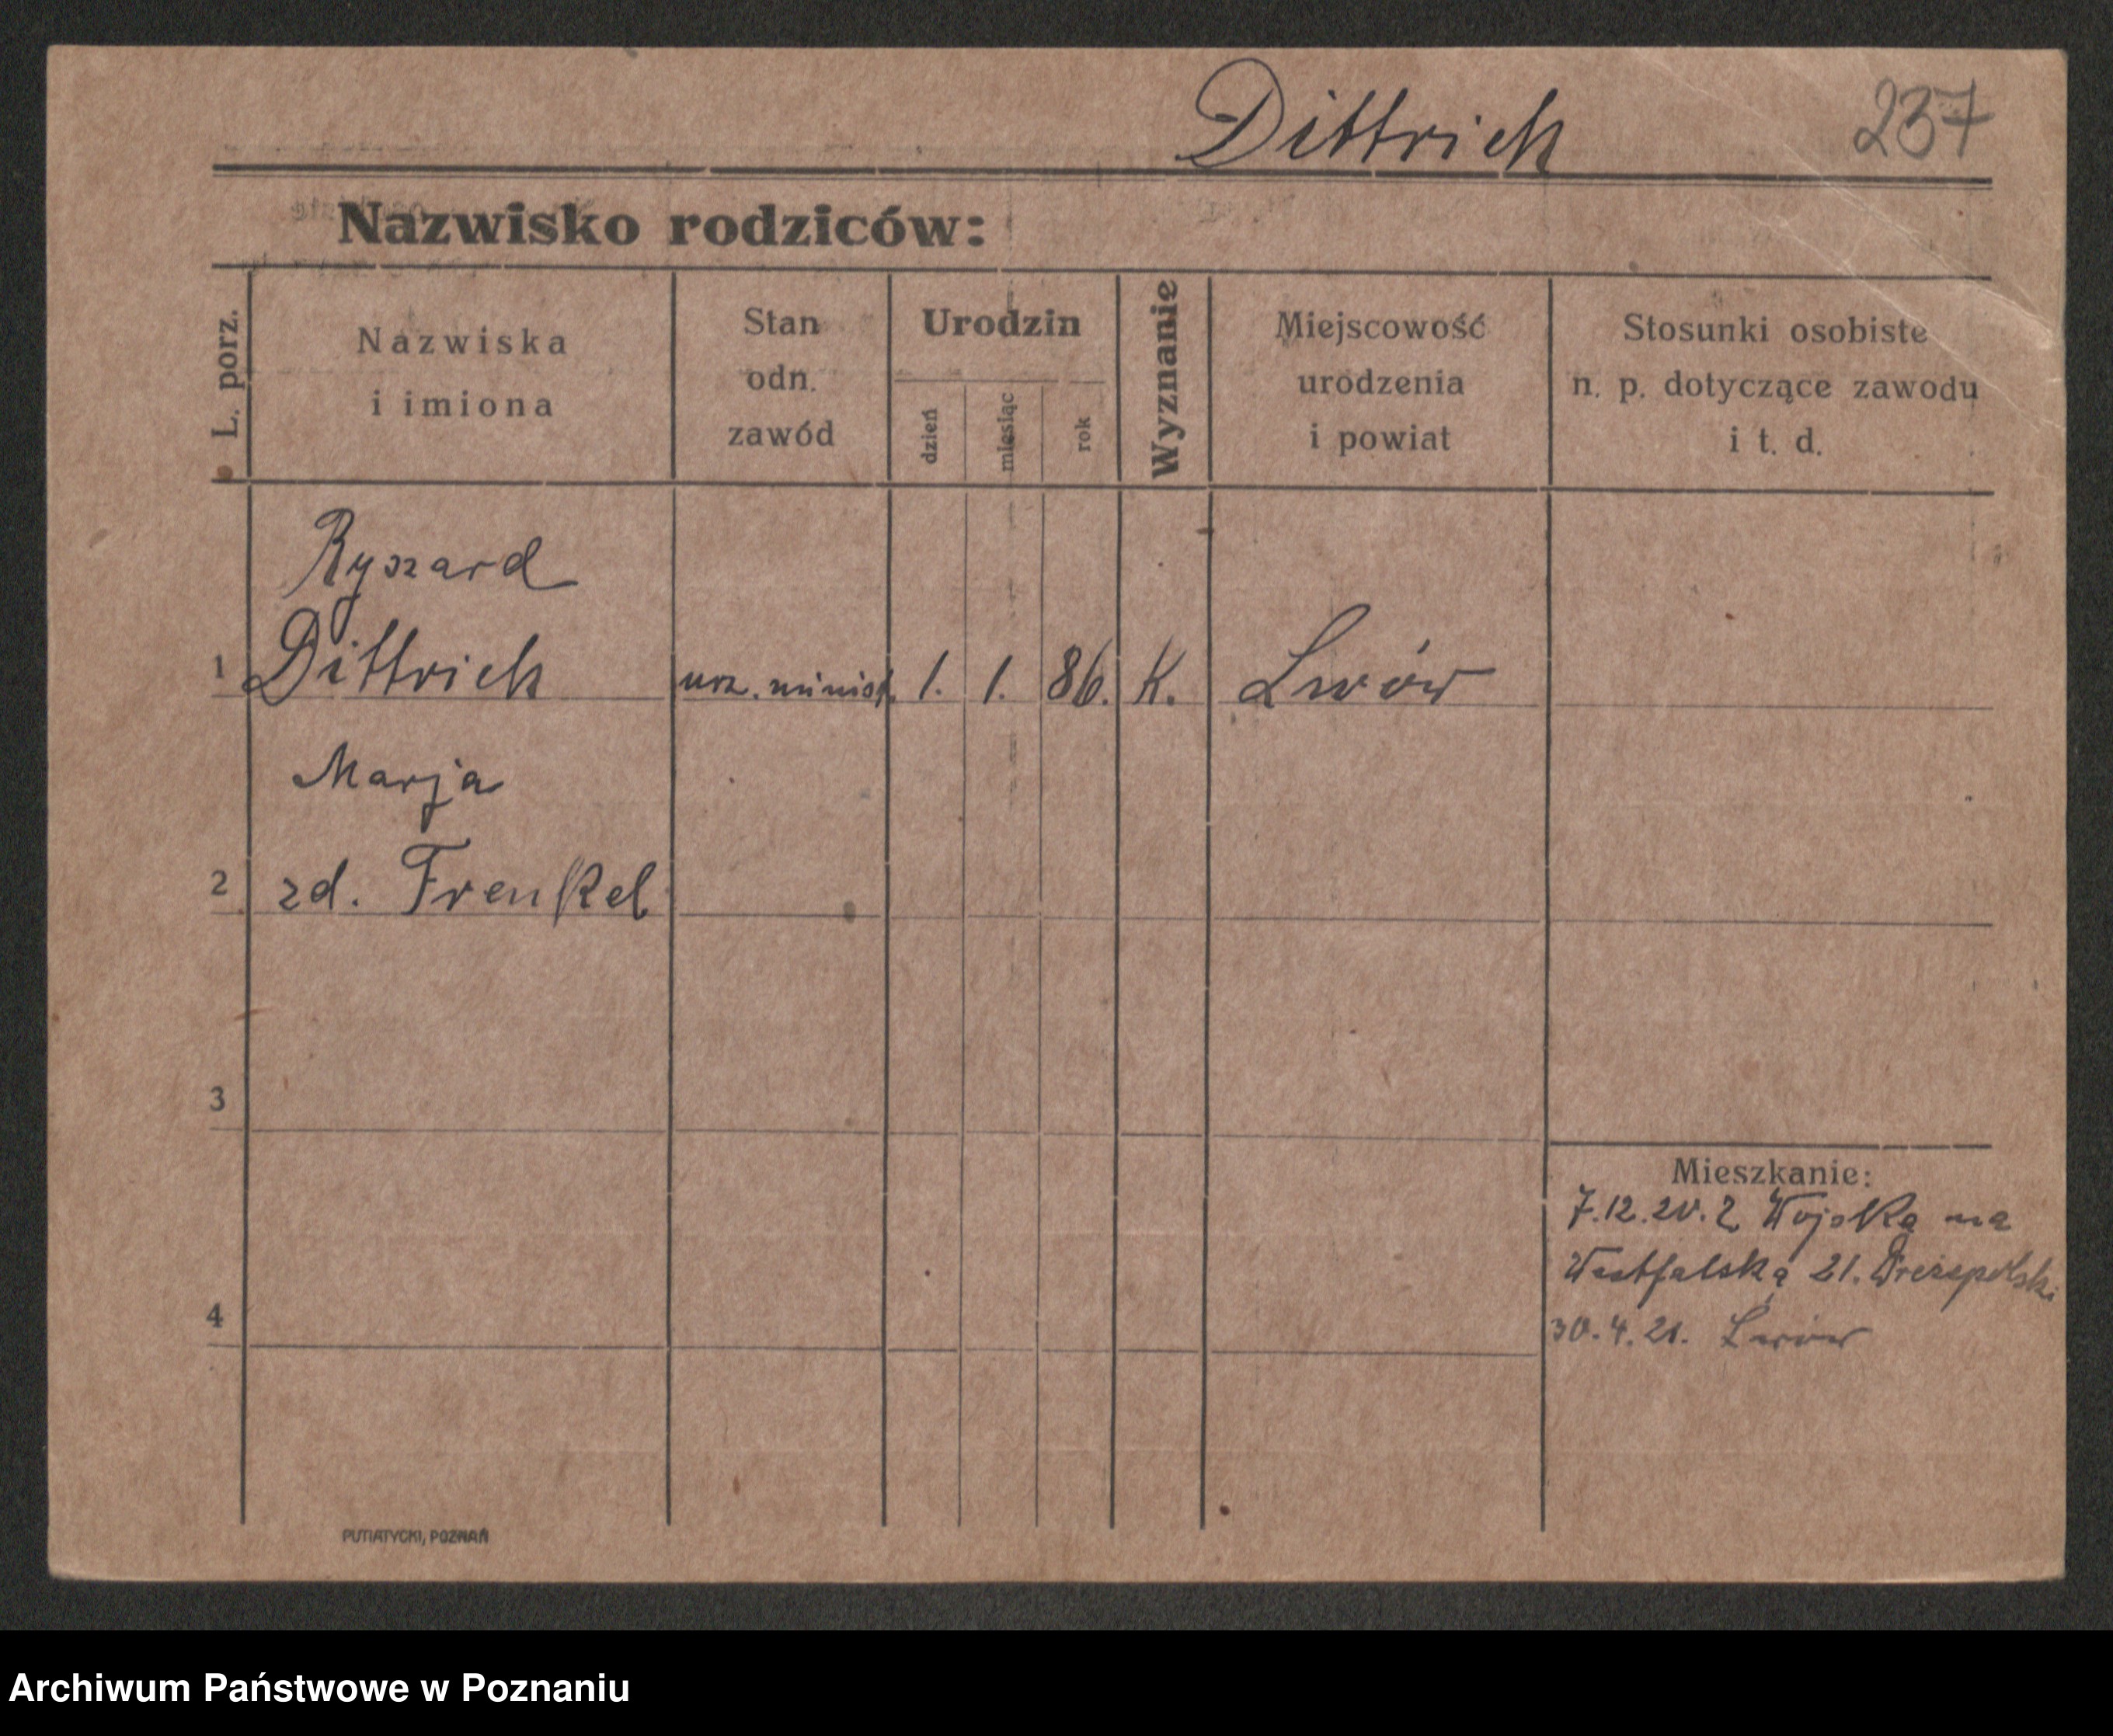 Dittrich 237
Nazwisko rodziców:
L. porz.
Nazwiska
i imiona
Stan
odn.
zawód
Urodzin
dzień
miesiąc
rok
Wyznanie
Miejscowość
urodzenia
i powiat
Stosunki osobiste
n. p. dotyczące zawodu
i t. d.
Ryszard
1 Dittrich urz. minist. 1. 1. 86. K. Lwów
Marja
2 zd. Frenkel
3
Mieszkanie:
7.12.20. z Wojska na
Westfalską 21.
4
30.4.21. Lwów
PUTIATYCKI, POZNAŃ
Archiwum Państwowe w Poznaniu